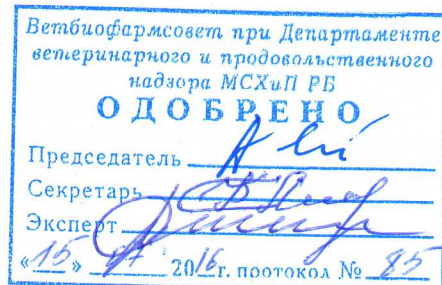 Ветбиофармсовет при Департаменте
ветеринарного и продовольственного
надзора МСХиП РБ
ОДОБРЕНО
Председатель
Секретарь
Эксперт
«15» 2016г. протокол № 85